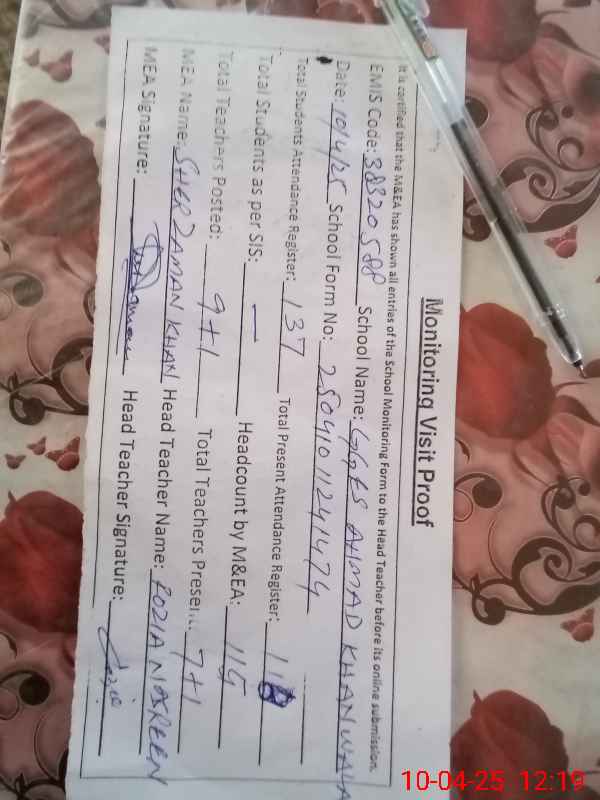 Monitoring Visit Proof
It is certified that the M&EA has shown all entries of the School Monitoring Form to the Head Teacher before its online submission.
EMIS Code: 38320588 School Name: GGES AHMAD KHAN WALA
Date: 10/4/25 School Form No: 25041011241474
Total Students Attendance Register: 137 Total Present Attendance Register:
Total Students as per SIS: — Headcount by M&EA: 115
Total Teachers Posted: 9+1 Total Teachers Present: 7+1
MEA Name: SHER ZAMAN KHAN Head Teacher Name: ROZIA NASREEN
MEA Signature: Head Teacher Signature:
10-04-25 12:19